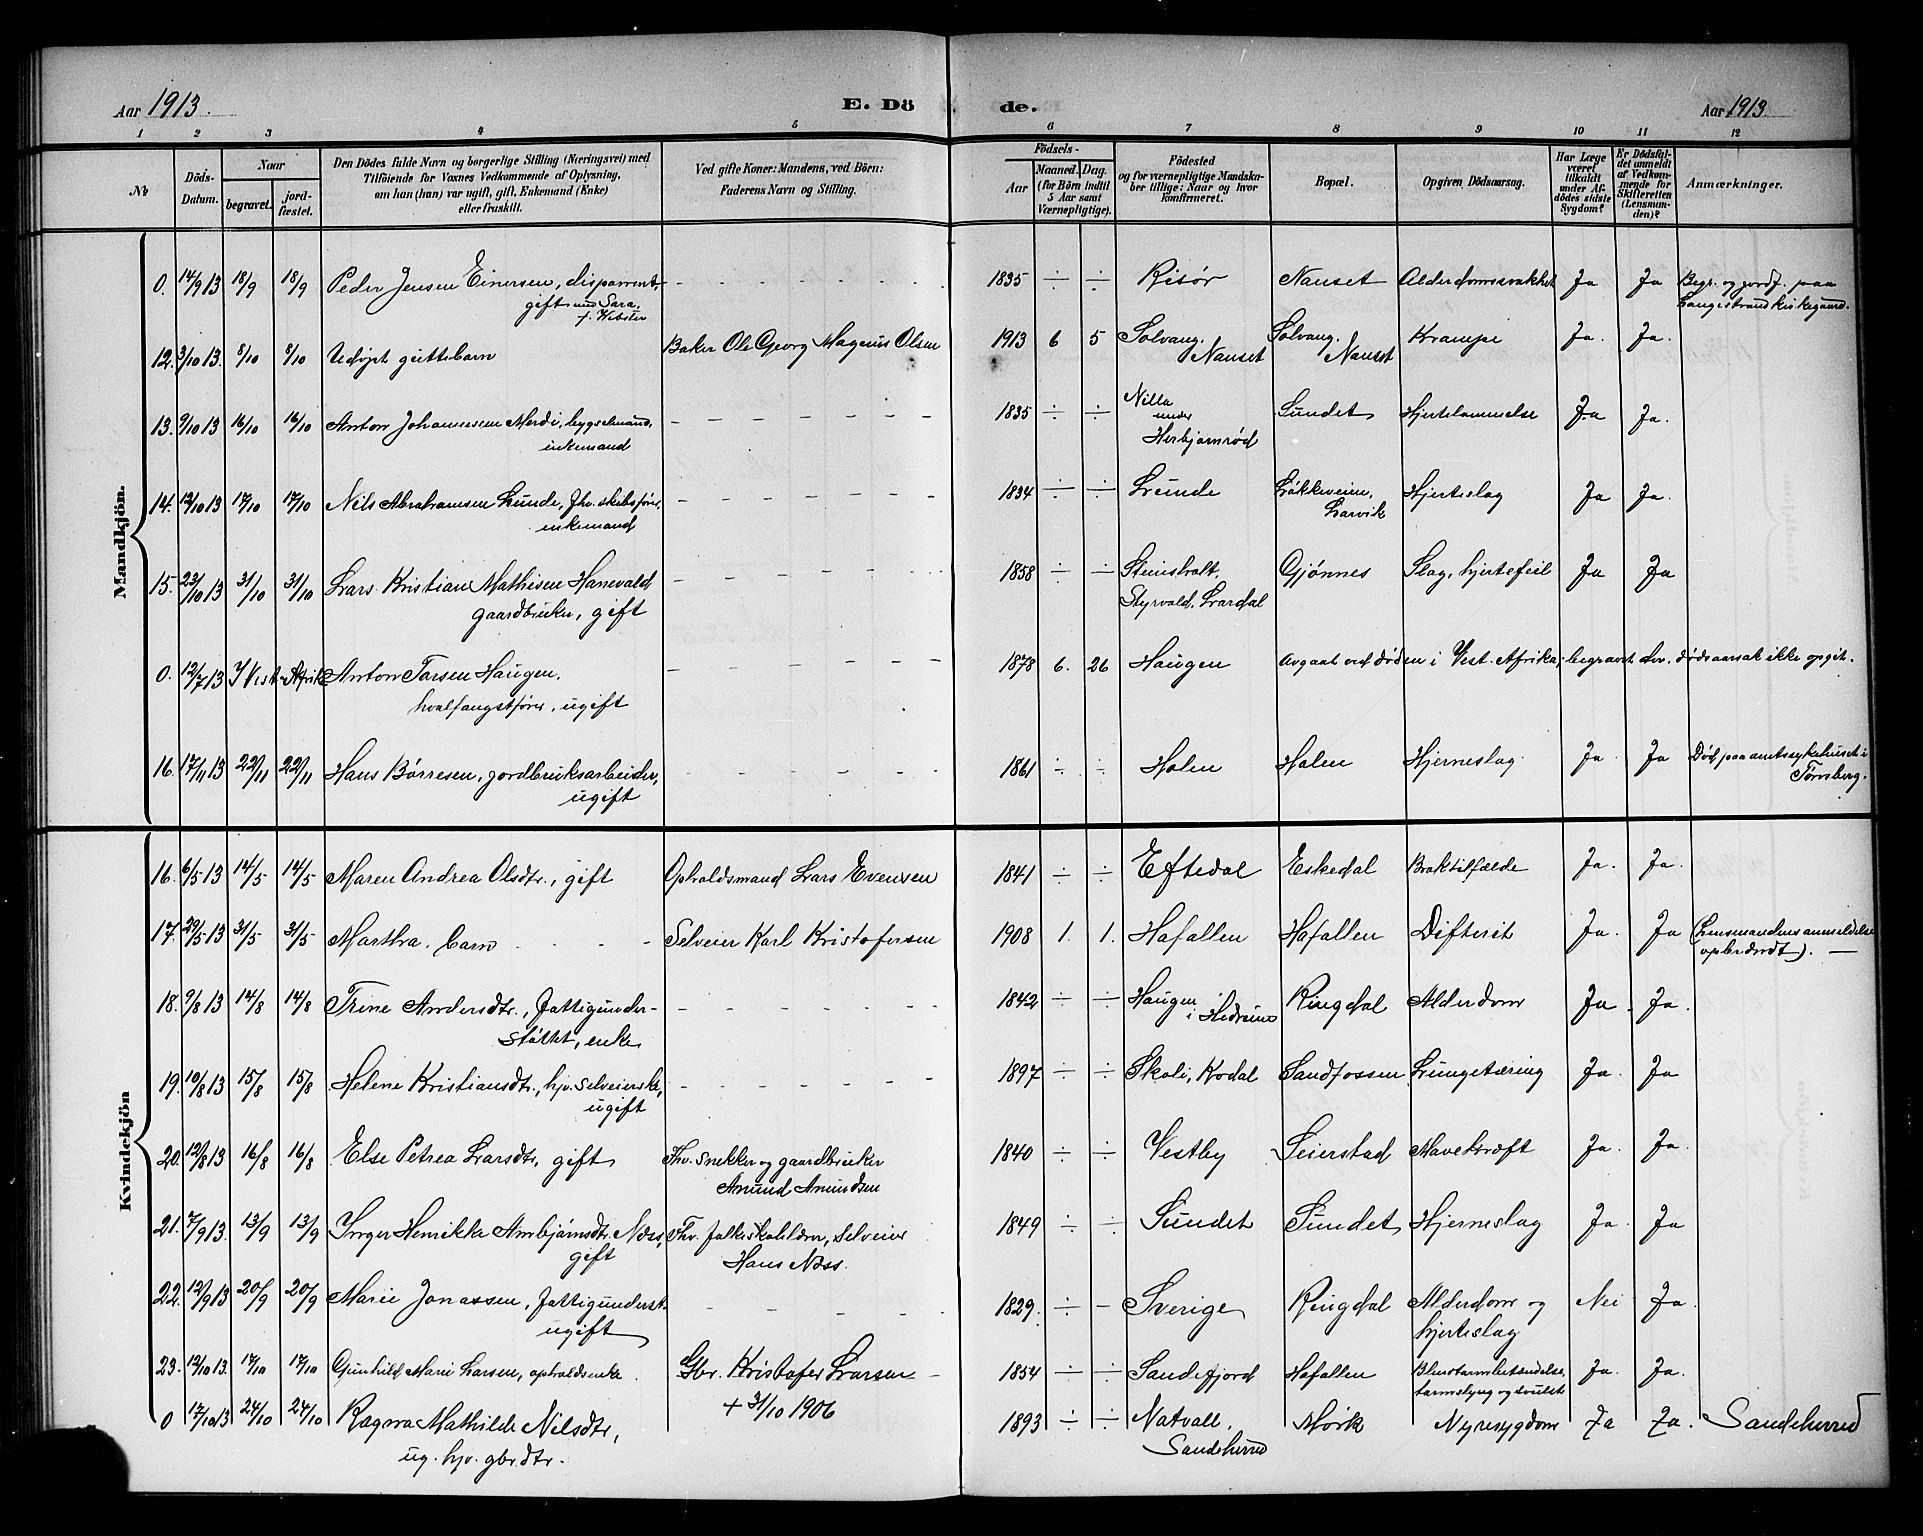 Aar 1913. E. Dö de. Aar 1913.
1 2 3 4 5 6 7 8 9 10 11 12
No
Döds-Datum.
Naar
begravet. jord-fæstet.
Den Dödes fulde Navn og borgerlige Stilling (Næringsvei) med
Tilföiende for Voxnes Vedkommende af Oplysning,
om han (hun) var ugift, gift, Enkemand (Enke)
eller fraskilt.
Ved gifte Koner: Mandens, ved Börn:
Faderens Navn og Stilling.
Födsels-
Aar Maaned. Dag.
(for Börn indtil
5 Aar samt
Værnepligtige).
Födested
og for værnepligtige Mandska-
ber tillige: Naar og hvor
konfirmeret.
Bopæl.
Opgiven Dödsaarsag.
Har Læge
været
tilkaldt
under Af-
dödes sidste
Sygdom?
Er Dödsfal-
det anmeldt
af Vedkom-
mende for
Skifteretten
(Lensman-
den)?
Anmærkninger.
Mandkjön.
0. 14/9 13 18/9 18/9 Peder Jensen Einersen, disponent, - - - - 1835 ÷ ÷ Risör Nanset Alderdomssvakhet Ja Ja Begr. og jordf. paa
gift med Sara, Langestrand kirkegaard.
f. Webster
12. 3/10 13. 8/10 8/10 Udøpt guttebarn Baker Ole Georg Magnus Olsen 1913 6 5 Solvang, Solvang, Krampe Ja. Ja.
Nanset Nanset
13. 9/10 13 16/10 16/10 Anton Johannessen Merdi, bygselmand, - - - - 1835 ÷ ÷ Nilla Sundet Hjertelammelse Ja Ja.
enkemand under
Herbjørnrød
14. 12/10 13 17/10 17/10 Nils Abrahamsen Lunde, fhv. skibsfører, - - - - 1834 ÷ ÷ Lunde Løkkeveien, Hjerteslag Ja Ja.
enkemand Larvik
15. 23/10 13 31/10 31/10 Lars Kristian Mathisen Hanevald - - - - 1858 ÷ ÷ Steinsholt, Gjønnes Slag, hjertefeil Ja Ja
gaardbruker, gift Styrvold, Lardal
0. 12/7 13 I Vest-Afrika Anton Torsen Haugen, - - - - 1878 6. 26 Haugen Avgaat ved døden i Vest-Afrika, begravet der. Dødsaarsak ikke opgit.
hvalfangstfører, ugift
16. 17/11 13 22/11 22/11 Hans Børresen, jordbruksarbeider, - - - - 1861 ÷ ÷ Holen Holen Hjerneslag Ja. Ja Død paa amtssykehuset i
ugift Tønsberg.
Kvindekjön
16. 6/5 13 14/5 14/5 Maren Andrea Olsdtr., gift Opholdsmand Lars Evensen 1841 ÷ ÷ Eftedal Eskedal Braktilfælde Ja. Ja.
17. 29/5 13 31/5 31/5 Martha, barn - - - Selveier Karl Kristofersen 1908 1. 1. Hafallen Hafallen Difterit Ja. Ja (Lensmandens anmeldelse
opbrændt). —
18. 9/8 13 14/8 14/8 Trine Andersdtr., fattigunder- - - - - 1842 ÷ ÷ Haugen Ringdal Alderdom Ja. Ja.
støttet, enke i Hedrum
19. 10/8 13 15/8 15/8 Helene Kristiansdtr., hjv. selveierske, - - - - 1897 ÷ ÷ Skoli, Kodal Sandfossen Lungetæring Ja. Ja
ugift
20. 12/8 13 16/8 16/8 Else Petrea Larsdtr., gift Fhv. snekker og gaardbruker 1840 ÷ ÷ Vestby Seierstad Mavekræft Ja. Ja.
Amund Amundsen
21. 7/9 13. 13/9 13/9 Inger Henrikke Arnbjørnsdtr. Næss, Fhv. folkeskolelærer, selveier 1849 ÷ ÷ Sundet Sundet Hjerneslag Ja. Ja
gift Hans Næss.
22. 12/9 13 20/9 20/9 Marie Jonassen, fattigunderst. - - - - 1829. ÷ - Sverige Ringdal Alderdom og Nei Ja.
ugift hjerteslag
23. 12/10 13. 17/10 17/10 Gunhild Marie Larsen, opholdsenke. Gbr. Kristofer Larsen - 1854 ÷ ÷ Sandefjord Hafallen Blindtarmbetændelse, Ja. Ja.
+ 31/10 1906 tarmslyng og svulst
0 17/10 13 24/10 24/10 Ragna Mathilde Nilsdtr., 1893 ÷ ÷ Natvall, Mørk Nyresygdom Ja Ja. Sandeherred
ug. hjv. gbr.dtr. Sandeherred